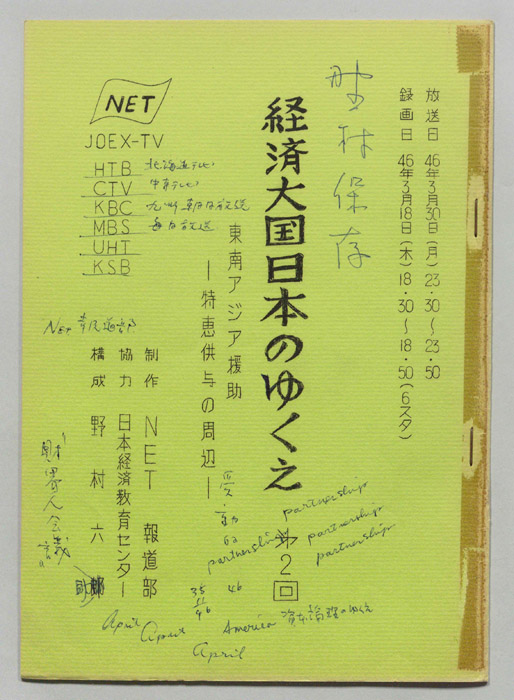 放送日 46年3月30日(月)23・30〜23・50
録画日 46年3月18日(木)18・30〜18・50(6スタ)
野村保存
経済大国日本のゆくえ
第2回
東南アジア援助
―特恵供与の周辺―
NET
JOEX-TV
HTB 北海道テレビ
CTV 中京テレビ
KBC 九州朝日放送
MBS 毎日放送
UHT
KSB
制作 NET 報道部
協力 日本経済教育センター
構成 野村六
partnership
partnership
partnership
partnership
35
11
46
46
America 資本論理のゆくえ
April
April
April
財界人会議